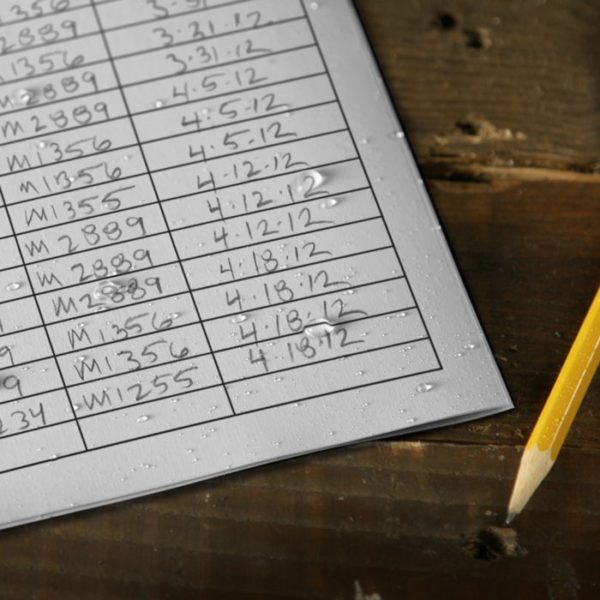 1356
2889 3.31
M1356 3.31.12
M2889 3.31.12
M2889 4.5.12
M1356 4.5.12
M1356 4.5.12
M1355 4.12.12
M2889 4.12.12
M2889 4.12.12
M2889 4.18.12
9 M1356 4.18.12
9 M1356 4.18.12
234 M1255 4.18.12